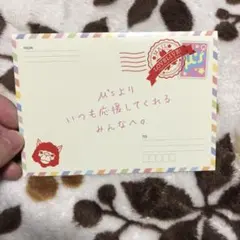 FROM
μ'sより
いつも応援してくれる
みんなへ。
TO